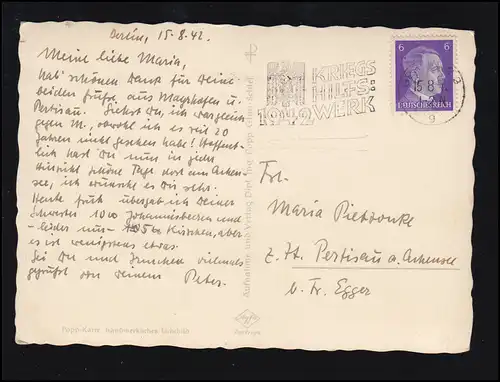 Berlin, 15.8.42.
Meine liebe Maria,
hab' schönen Dank für Deine
beiden Grüße aus Mayrhofen u.
Pertisau. Siehst Du, ich war gleich
gegen M., obwohl ich es seit 20
Jahren nicht gesehen habe! Hoffent-
lich hast Du nun in jeder
Hinsicht schöne Tage dort am Achen-
see, ich wünsche es Dir sehr.
Heute früh übergab ich Deiner
Schwester 10 Johannisbeeren und
-leider nur- Kirschen, aber
es ist wenigstens etwas.
Sei Du und vielmals
gegrüßt von Deinem Peter.
Popp-Karte handwerkliches Lichtbild
Aufnahme und Verlag Dipl. Ing.
Agfa
KRIEGS
HILFS:
WERK
1942
6 6
DEUTSCHES REICH
9
Frl.
Maria Pietzonke
z. Zt. Pertisau a. Achensee
b. Fr. Egger